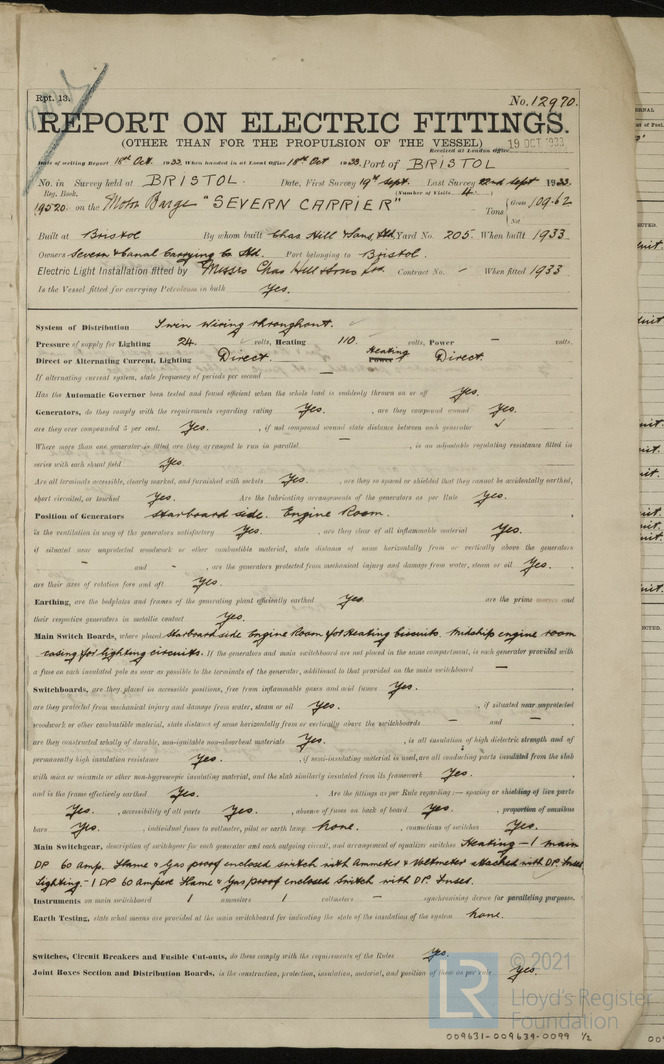 Rpt. 13.
No. 12970.
REPORT ON ELECTRIC FITTINGS.
(OTHER THAN FOR THE PROPULSION OF THE VESSEL)
19 OCT 1933
Received at London Office
Date of writing Report 18th Oct. 1933. When handed in at Local Office 18th Oct 1933. Port of BRISTOL
No. in Survey held at BRISTOL. Date, First Survey 19th Sept. Last Survey 22nd Sept 1933.
Reg. Book. (Number of Visits 4.)
19520. on the Motor Barge "SEVERN CARRIER" Tons Gross 109.62
Net
Built at Bristol By whom built Chas Hill & Sons, Ltd. Yard No. 205. When built 1933.
Owners Severn & Canal Carrying Co Ltd. Port belonging to Bristol.
Electric Light Installation fitted by Messrs Chas Hill & Sons Ltd. Contract No. - When fitted 1933
Is the Vessel fitted for carrying Petroleum in bulk Yes.
System of Distribution Twin Wiring throughout.
Pressure of supply for Lighting 24. volts, Heating 110. volts, Power - volts.
Heating
Direct or Alternating Current, Lighting Direct. Power Direct.
If alternating current system, state frequency of periods per second -
Has the Automatic Governor been tested and found efficient when the whole load is suddenly thrown on or off Yes.
Generators, do they comply with the requirements regarding rating Yes. , are they compound wound Yes.
are they over compounded 5 per cent. Yes. , if not compound wound state distance between each generator
Where more than one generator is fitted are they arranged to run in parallel. - , is an adjustable regulating resistance fitted in
series with each shunt field Yes.
Are all terminals accessible, clearly marked, and furnished with sockets Yes. , are they so spaced or shielded that they cannot be accidentally earthed,
short circuited, or touched Yes. Are the lubricating arrangements of the generators as per Rule Yes.
Position of Generators Starboard side. Engine Room.
is the ventilation in way of the generators satisfactory Yes. , are they clear of all inflammable material Yes.
if situated near unprotected woodwork or other combustible material, state distance of same horizontally from or vertically above the generators
- and - , are the generators protected from mechanical injury and damage from water, steam or oil Yes.
are their axes of rotation fore and aft Yes.
Earthing, are the bedplates and frames of the generating plant efficiently earthed Yes are the prime movers and
their respective generators in metallic contact Yes.
Main Switch Boards, where placed Starboard side Engine Room for Heating Circuits. Midship engine room
casing for lighting circuits. If the generators and main switchboard are not placed in the same compartment, is each generator provided with
a fuse on each insulated pole as near as possible to the terminals of the generator, additional to that provided on the main switchboard -
Switchboards, are they placed in accessible positions, free from inflammable gases and acid fumes Yes.
are they protected from mechanical injury and damage from water, steam or oil Yes. , if situated near unprotected
woodwork or other combustible material, state distance of same horizontally from or vertically above the switchboards - and -
are they constructed wholly of durable, non-ignitable non-absorbent materials Yes. , is all insulation of high dielectric strength and of
permanently high insulation resistance Yes. , if semi-insulating material is used, are all conducting parts insulated from the slab
with mica or micanite or other non-hygroscopic insulating material, and the slab similarly insulated from its framework Yes.
and is the frame effectively earthed Yes. Are the fittings as per Rule regarding:- spacing or shielding of live parts
Yes. , accessibility of all parts Yes. , absence of fuses on back of board Yes. , proportion of omnibus
bars Yes. , individual fuses to voltmeter, pilot or earth lamp None. , connections of switches Yes.
Main Switchgear, description of switchgear for each generator and each outgoing circuit, and arrangement of equalizer switches Heating - 1 main
DP 60 Amp. Flame & Gas proof enclosed switch with Ammeter & Voltmeter attached with DP. Fuses.
Lighting. - 1 DP 60 Ampere Flame & Gas proof enclosed Switch with DP. Fuses.
Instruments on main switchboard 1 ammeters 1 voltmeters - synchronising device for paralleling purposes.
Earth Testing, state what means are provided at the main switchboard for indicating the state of the insulation of the system None.
Switches, Circuit Breakers and Fusible Cut-outs, do these comply with the requirements of the Rules Yes.
Joint Boxes Section and Distribution Boards, is the construction, protection, insulation, material, and position of these as per rule Yes.
© 2021
LR
Lloyd's Register
Foundation
009631-009639-0099 1/2